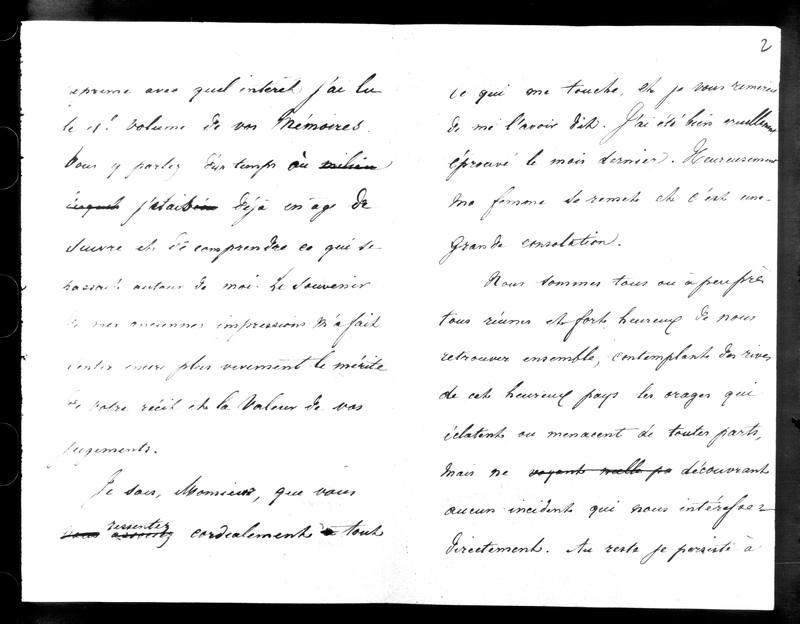 exprime avec quel intérêt j'ai lu
le 1er volume de vos Mémoires.
Vous y parlez d'un temps où milieu
duquel j'étais déjà en âge de
suivre et de comprendre ce qui se
passait autour de moi. Le souvenir
de mes anciennes impressions m'a fait
sentir encore plus vivement le mérite
de votre récit et la valeur de vos
jugements.
Je sais, Monsieur, que vous
vous ressentez cordialement tout
2
ce qui me touche, et je vous remercie
de me l'avoir dit. J'ai été bien cruellement
éprouvé le mois dernier. Heureusement
ma femme se remet et c'est une
grande consolation.
Nous sommes tous ou à peu près
tous réunis et forts heureux de nous
retrouver ensemble, contemplant des rives
de cet heureux pays les orages qui
éclatent ou menacent de toutes parts,
mais ne voyant nulle pa découvrant
aucun incident qui nous intéresse
directement. Au reste je persiste à